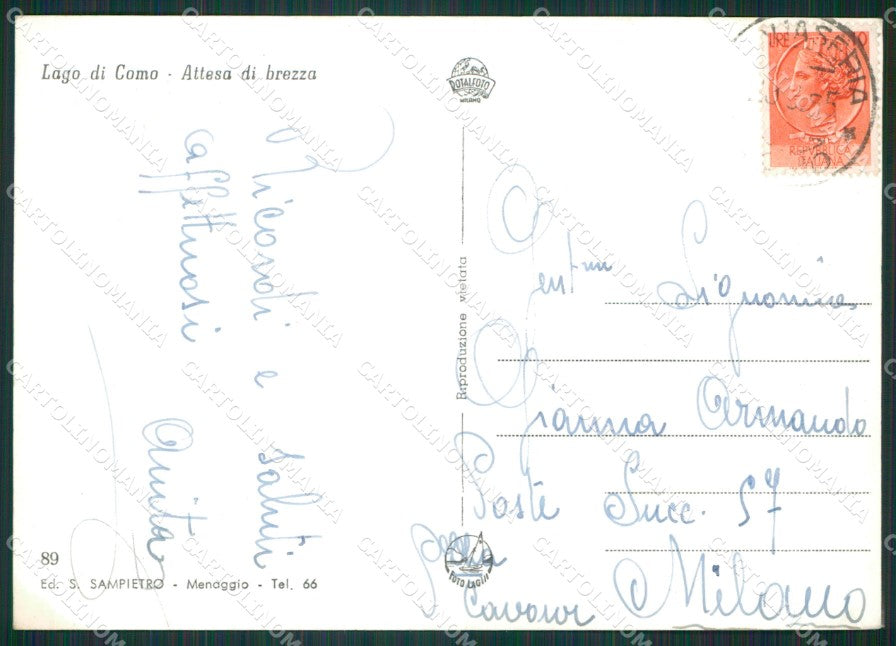 Lago di Como - Attesa di brezza
ROTALFOTO
MILANO
LIRE 10
REPVBBLICA
ITALIANA
Ricordi e saluti
affettuosi
Anita
Riproduzione vietata
Gent.ma Signorina
Gianna Armando
Poste Succ. 57
Cavour Milano
FOTO LAGHI
89
Ed. S. SAMPIETRO - Menaggio - Tel. 66
CARTOLINOMANIA